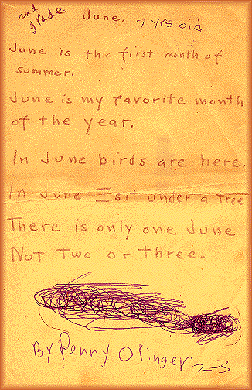 2nd grade June, 7 yrs old
June is the first month of
summer.
June is my favorite month
of the year.
In June birds are here.
In June I sit under a tree
There is only one June
Not two or three.
By Penny Olinger